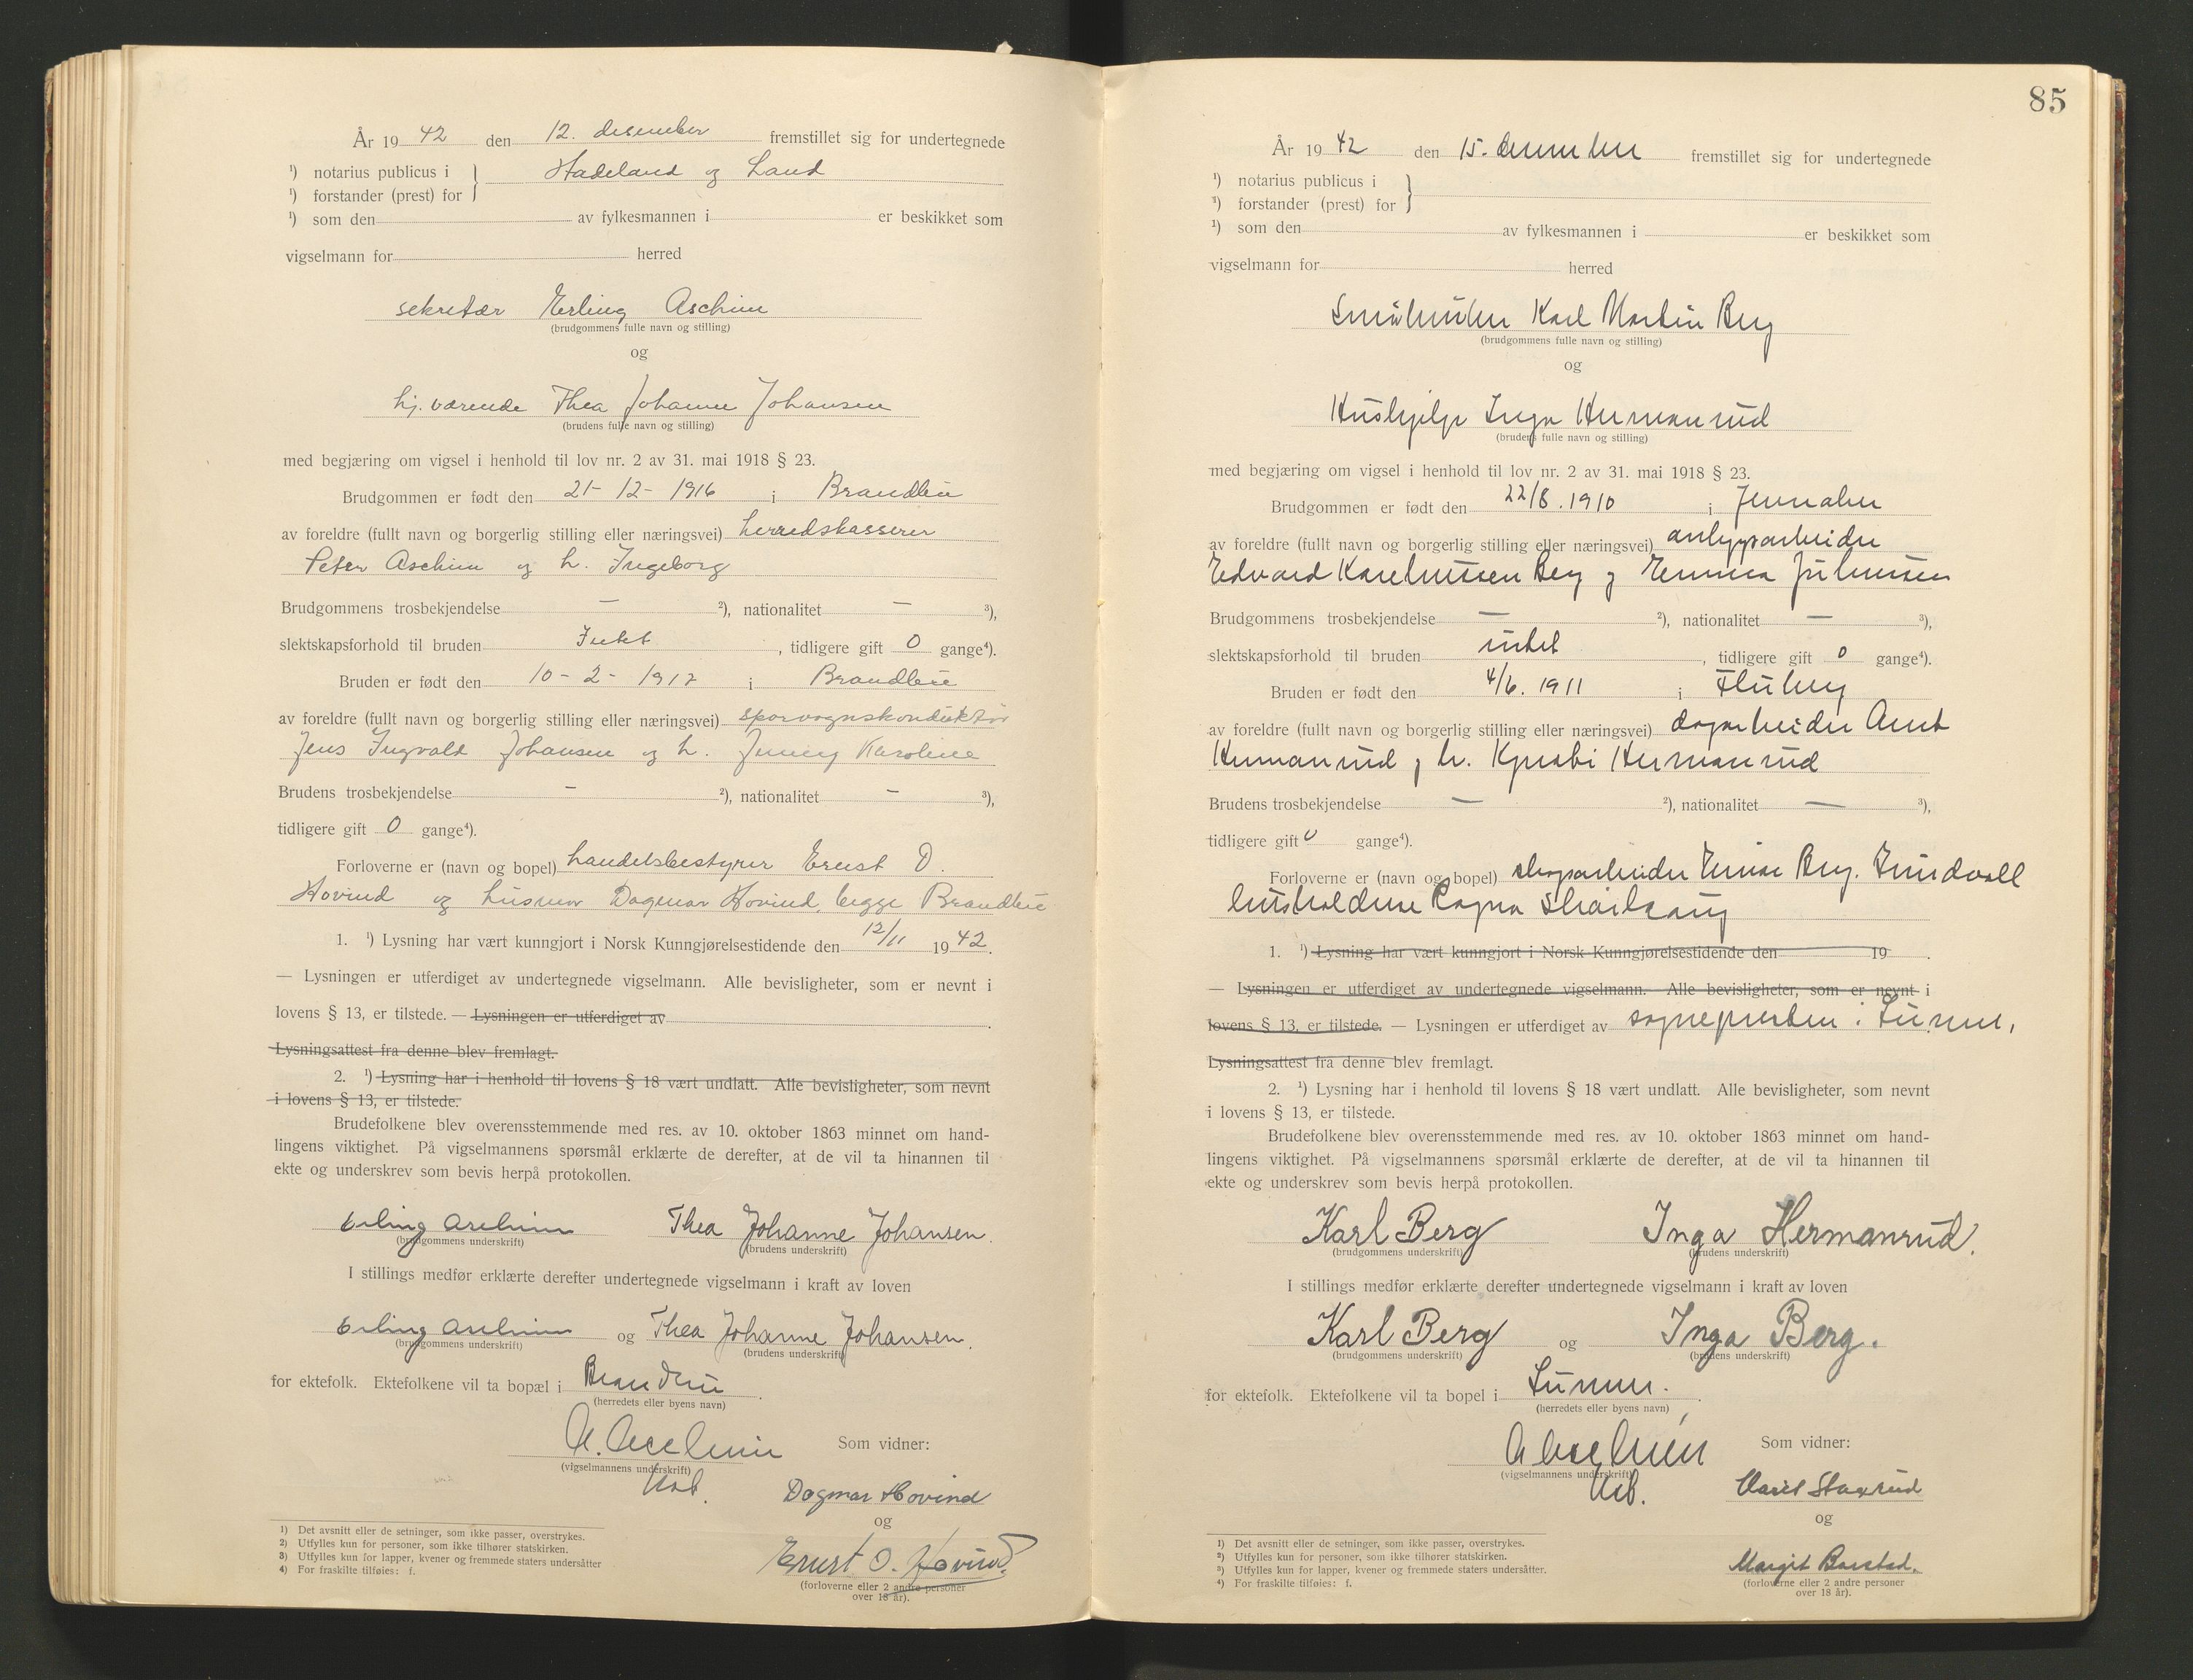 År 19 42 den 12. desember fremstillet sig for undertegnede
¹) notarius publicus i } Hadeland og Land
¹) forstander (prest) for
¹) som den av fylkesmannen i er beskikket som
vigselmann for herred
sekretær Erling Aschim
(brudgommens fulle navn og stilling)
og
hj. værende Thea Johanne Johansen
(brudens fulle navn og stilling)
med begjæring om vigsel i henhold til lov nr. 2 av 31. mai 1918 § 23.
Brudgommen er født den 21 - 12 - 1916 i Brandbu
av foreldre (fullt navn og borgerlig stilling eller næringsvei) herredskasserer
Peter Aschim og h. Ingeborg
Brudgommens trosbekjendelse — ²), nationalitet — ³),
slektskapsforhold til bruden Intet , tidligere gift 0 gange⁴).
Bruden er født den 10 - 2 - 1917 i Brandbu
av foreldre (fullt navn og borgerlig stilling eller næringsvei) sporvognskonduktør
Jens Ingvald Johansen og h. Jenny Karoline
Brudens trosbekjendelse - ²), nationalitet - ³),
tidligere gift 0 gange⁴).
Forloverne er (navn og bopel) handelsbestyrer Ernst O.
Hovind og husmor Dagmar Hovind, begge Brandbu
1. ¹) Lysning har vært kunngjort i Norsk Kunngjørelsestidende den 12/11 19 42.
— Lysningen er utferdiget av undertegnede vigselmann. Alle bevisligheter, som er nevnt i
lovens § 13, er tilstede. — Lysningen er utferdiget av .
Lysningsattest fra denne blev fremlagt.
2. ¹) Lysning har i henhold til lovens § 18 vært undlatt. Alle bevisligheter, som nevnt
i lovens § 13, er tilstede.
Brudefolkene blev overensstemmende med res. av 10. oktober 1863 minnet om hand-
lingens viktighet. På vigselmannens spørsmål erklærte de derefter, at de vil ta hinannen til
ekte og underskrev som bevis herpå protokollen.
Erling Aschim Thea Johanne Johansen.
(brudgommens underskrift) (brudens underskrift)
I stillings medfør erklærte derefter undertegnede vigselmann i kraft av loven
Erling Aschim og Thea Johanne Johansen.
(brudgommens underskrift) (brudens underskrift)
for ektefolk. Ektefolkene vil ta bopæl i Brandbu .
(herredets eller byens navn)
Aschim Som vidner:
(vigselmannens underskrift)
Dagmar Hovind
og
Ernst O. Hovind.
(forloverne eller 2 andre personer
over 18 år).
1) Det avsnitt eller de setninger, som ikke passer, overstrykes.
2) Utfylles kun for personer, som ikke tilhører statskirken.
3) Utfylles kun for lapper, kvener og fremmede staters undersåtter
4) For fraskilte tilføies: f.
85
År 19 42 den 15. desember fremstillet sig for undertegnede
¹) notarius publicus i }
¹) forstander (prest) for
¹) som den av fylkesmannen i er beskikket som
vigselmann for herred
Småbruker Karl Martin Berg
(brudgommens fulle navn og stilling)
og
Hushjelp Inga Hermanrud
(brudens fulle navn og stilling)
med begjæring om vigsel i henhold til lov nr. 2 av 31. mai 1918 § 23.
Brudgommen er født den 22/8. 1910 i Jevnaker
av foreldre (fullt navn og borgerlig stilling eller næringsvei) anleggsarbeider
Edvard Kareliussen Berg og Emma Juliussen
Brudgommens trosbekjendelse — ²), nationalitet — ³),
slektskapsforhold til bruden intet , tidligere gift 0 gange⁴).
Bruden er født den 4/6. 1911 i Fluberg
av foreldre (fullt navn og borgerlig stilling eller næringsvei) dagarbeider Amt
Hermanrud og h. Hermanrud
Brudens trosbekjendelse — ²), nationalitet — ³),
tidligere gift 0 gange⁴).
Forloverne er (navn og bopel) skogsarbeider Einar Berg. Grindvoll
husholderske Ragna
1. ¹) Lysning har vært kunngjort i Norsk Kunngjørelsestidende den 19 .
— Lysningen er utferdiget av undertegnede vigselmann. Alle bevisligheter, som er nevnt i
lovens § 13, er tilstede. — Lysningen er utferdiget av sognepresten i Lunner,
Lysningsattest fra denne blev fremlagt.
2. ¹) Lysning har i henhold til lovens § 18 vært undlatt. Alle bevisligheter, som nevnt
i lovens § 13, er tilstede.
Brudefolkene blev overensstemmende med res. av 10. oktober 1863 minnet om hand-
lingens viktighet. På vigselmannens spørsmål erklærte de derefter, at de vil ta hinannen til
ekte og underskrev som bevis herpå protokollen.
Karl Berg Inga Hermanrud.
(brudgommens underskrift) (brudens underskrift)
I stillings medfør erklærte derefter undertegnede vigselmann i kraft av loven
Karl Berg og Inga Berg.
(brudgommens underskrift) (brudens underskrift)
for ektefolk. Ektefolkene vil ta bopel i Lunner.
(herredets eller byens navn)
Aschim Som vidner:
(vigselmannens underskrift)
Marit Staxrud
og
Margit Barstad.
(forloverne eller 2 andre personer
over 18 år).
1) Det avsnitt eller de setninger, som ikke passer, overstrykes.
2) Utfylles kun for personer, som ikke tilhører statskirken.
3) Utfylles kun for lapper, kvener og fremmede staters undersåtter.
4) For fraskilte tilføies: f.